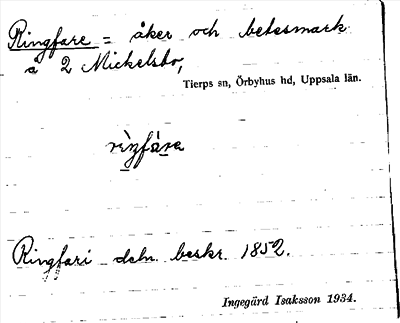 Ringfare = åker och betesmark
å 2 Mickelsbo,
Tierps sn, Örbyhus hd, Uppsala län.
rìŋfára
Ringfari deln. beskr. 1852.
Ingegärd Isaksson 1934.